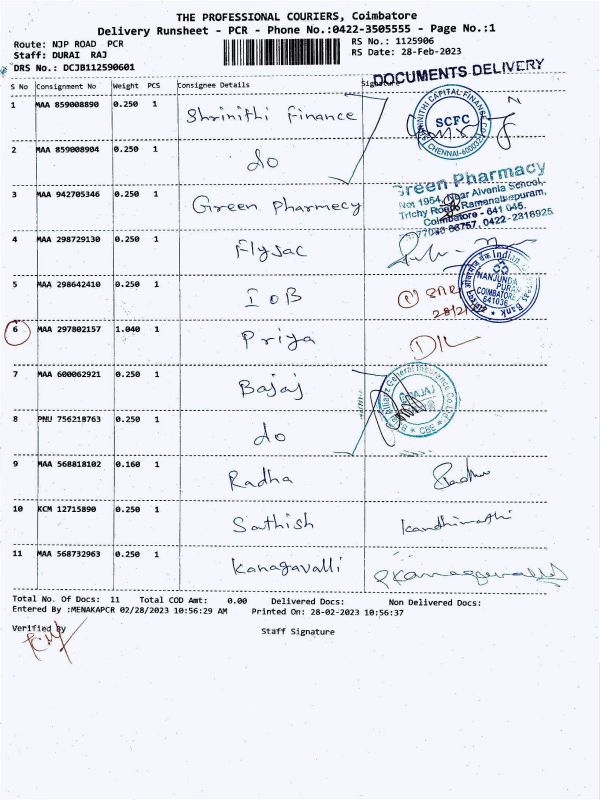 THE PROFESSIONAL COURIERS, Coimbatore
Delivery Runsheet - PCR - Phone No.:0422-3505555 - Page No.:1
Route: NJP ROAD PCR
RS No.: 1125906
Staff: DURAI RAJ
RS Date: 28-Feb-2023
DRS No.: DCJB112590601
DOCUMENTS DELIVERY
S No Consignment No Weight PCS Consignee Details Signature
1 MAA 859008890 0.250 1 Shrinithi Finance
SHRINITHI CAPITAL FINANCE
SCFC
CHENNAI-600034
2 MAA 859008904 0.250 1 do
3 MAA 942705346 0.250 1 Green Pharmecy
Green Pharmacy
No: 1954, Near Alvania School,
Trichy Road, Ramanathapuram,
Coimbatore - 641 045.
0422-2316925
4 MAA 298729130 0.250 1 Flysac
5 MAA 298642410 0.250 1 IOB
Indian Overseas Bank
NANJUNDA
PURAM
COIMBATORE
641036
6 MAA 297802157 1.040 1 Priya D/L
7 MAA 600062921 0.250 1 Bajaj
Bajaj Allianz General Insurance Co. Ltd.
BAJAJ
CBE
8 PNU 756218763 0.250 1 do
9 MAA 568818102 0.160 1 Radha Radha
10 KCM 12715890 0.250 1 Sathish Kandhimathi
11 MAA 568732963 0.250 1 Kanagavalli
Total No. Of Docs: 11 Total COD Amt: 0.00 Delivered Docs: Non Delivered Docs:
Entered By :MENAKAPCR 02/28/2023 10:56:29 AM Printed On: 28-02-2023 10:56:37
Verified By
Staff Signature